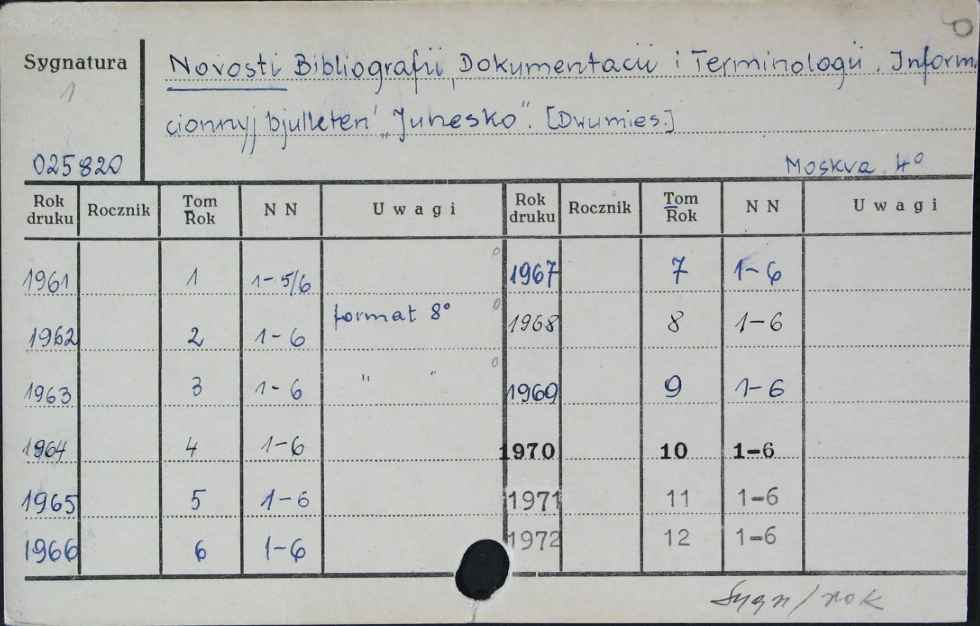 Sygnatura
1
025820
Novosti Bibliografii, Dokumentacii i Terminologii. Inform
cionnyj bjulleten' „Junesko". [Dwumies.]
Moskva 4°
Rok druku Rocznik Tom Rok NN Uwagi Rok druku Rocznik Tom Rok NN Uwagi
1961 1 1-5/6 1967 7 1-6
1962 2 1-6 format 8° 1968 8 1-6
1963 3 1-6 " " 1969 9 1-6
1964 4 1-6 1970 10 1-6
1965 5 1-6 1971 11 1-6
1966 6 1-6 1972 12 1-6
Sygn/rok